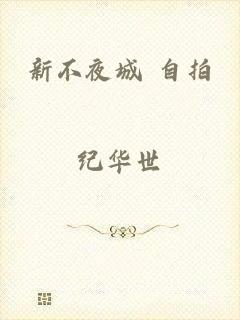 新不夜城 自拍
纪华世